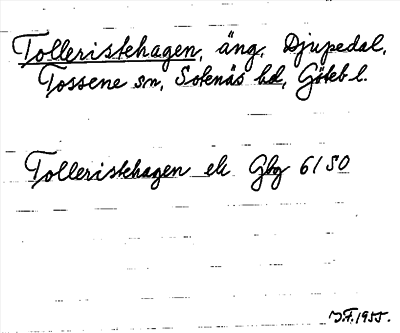 Tolleristehagen, äng, Djupedal,
Tossene sn, Sotenäs hd, Göteb l.
Tolleristehagen ek Gbg 6/50
J.F. 1955.